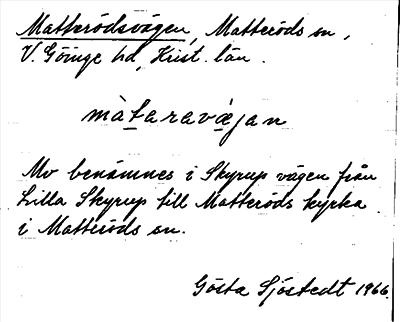 Matterödsvägen, Matteröds sn,
V. Göinge hd, Krist. län.
màtaravæ̀jan
Mv benämnes i Skyrup vägen från
Lilla Skyrup till Matteröds kyrka
i Matteröds sn.
Gösta Sjöstedt 1966.